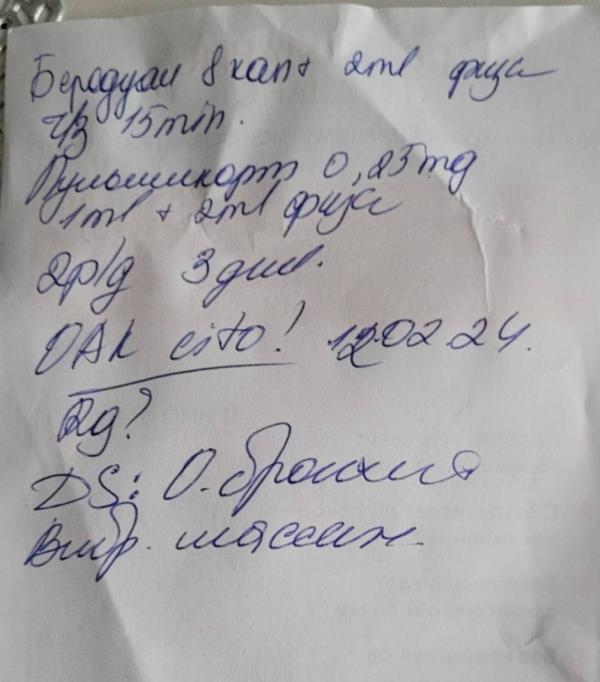 Беродуал 8 кап + 2ml физа
ч/з 15 min.
Пульмикорт 0,25 mg
1 ml + 2 ml физа
2р/д 3 дня.
ОАК cito! 12.02.24.
Rg?
DS: О. бронхит
Вибр. массаж.